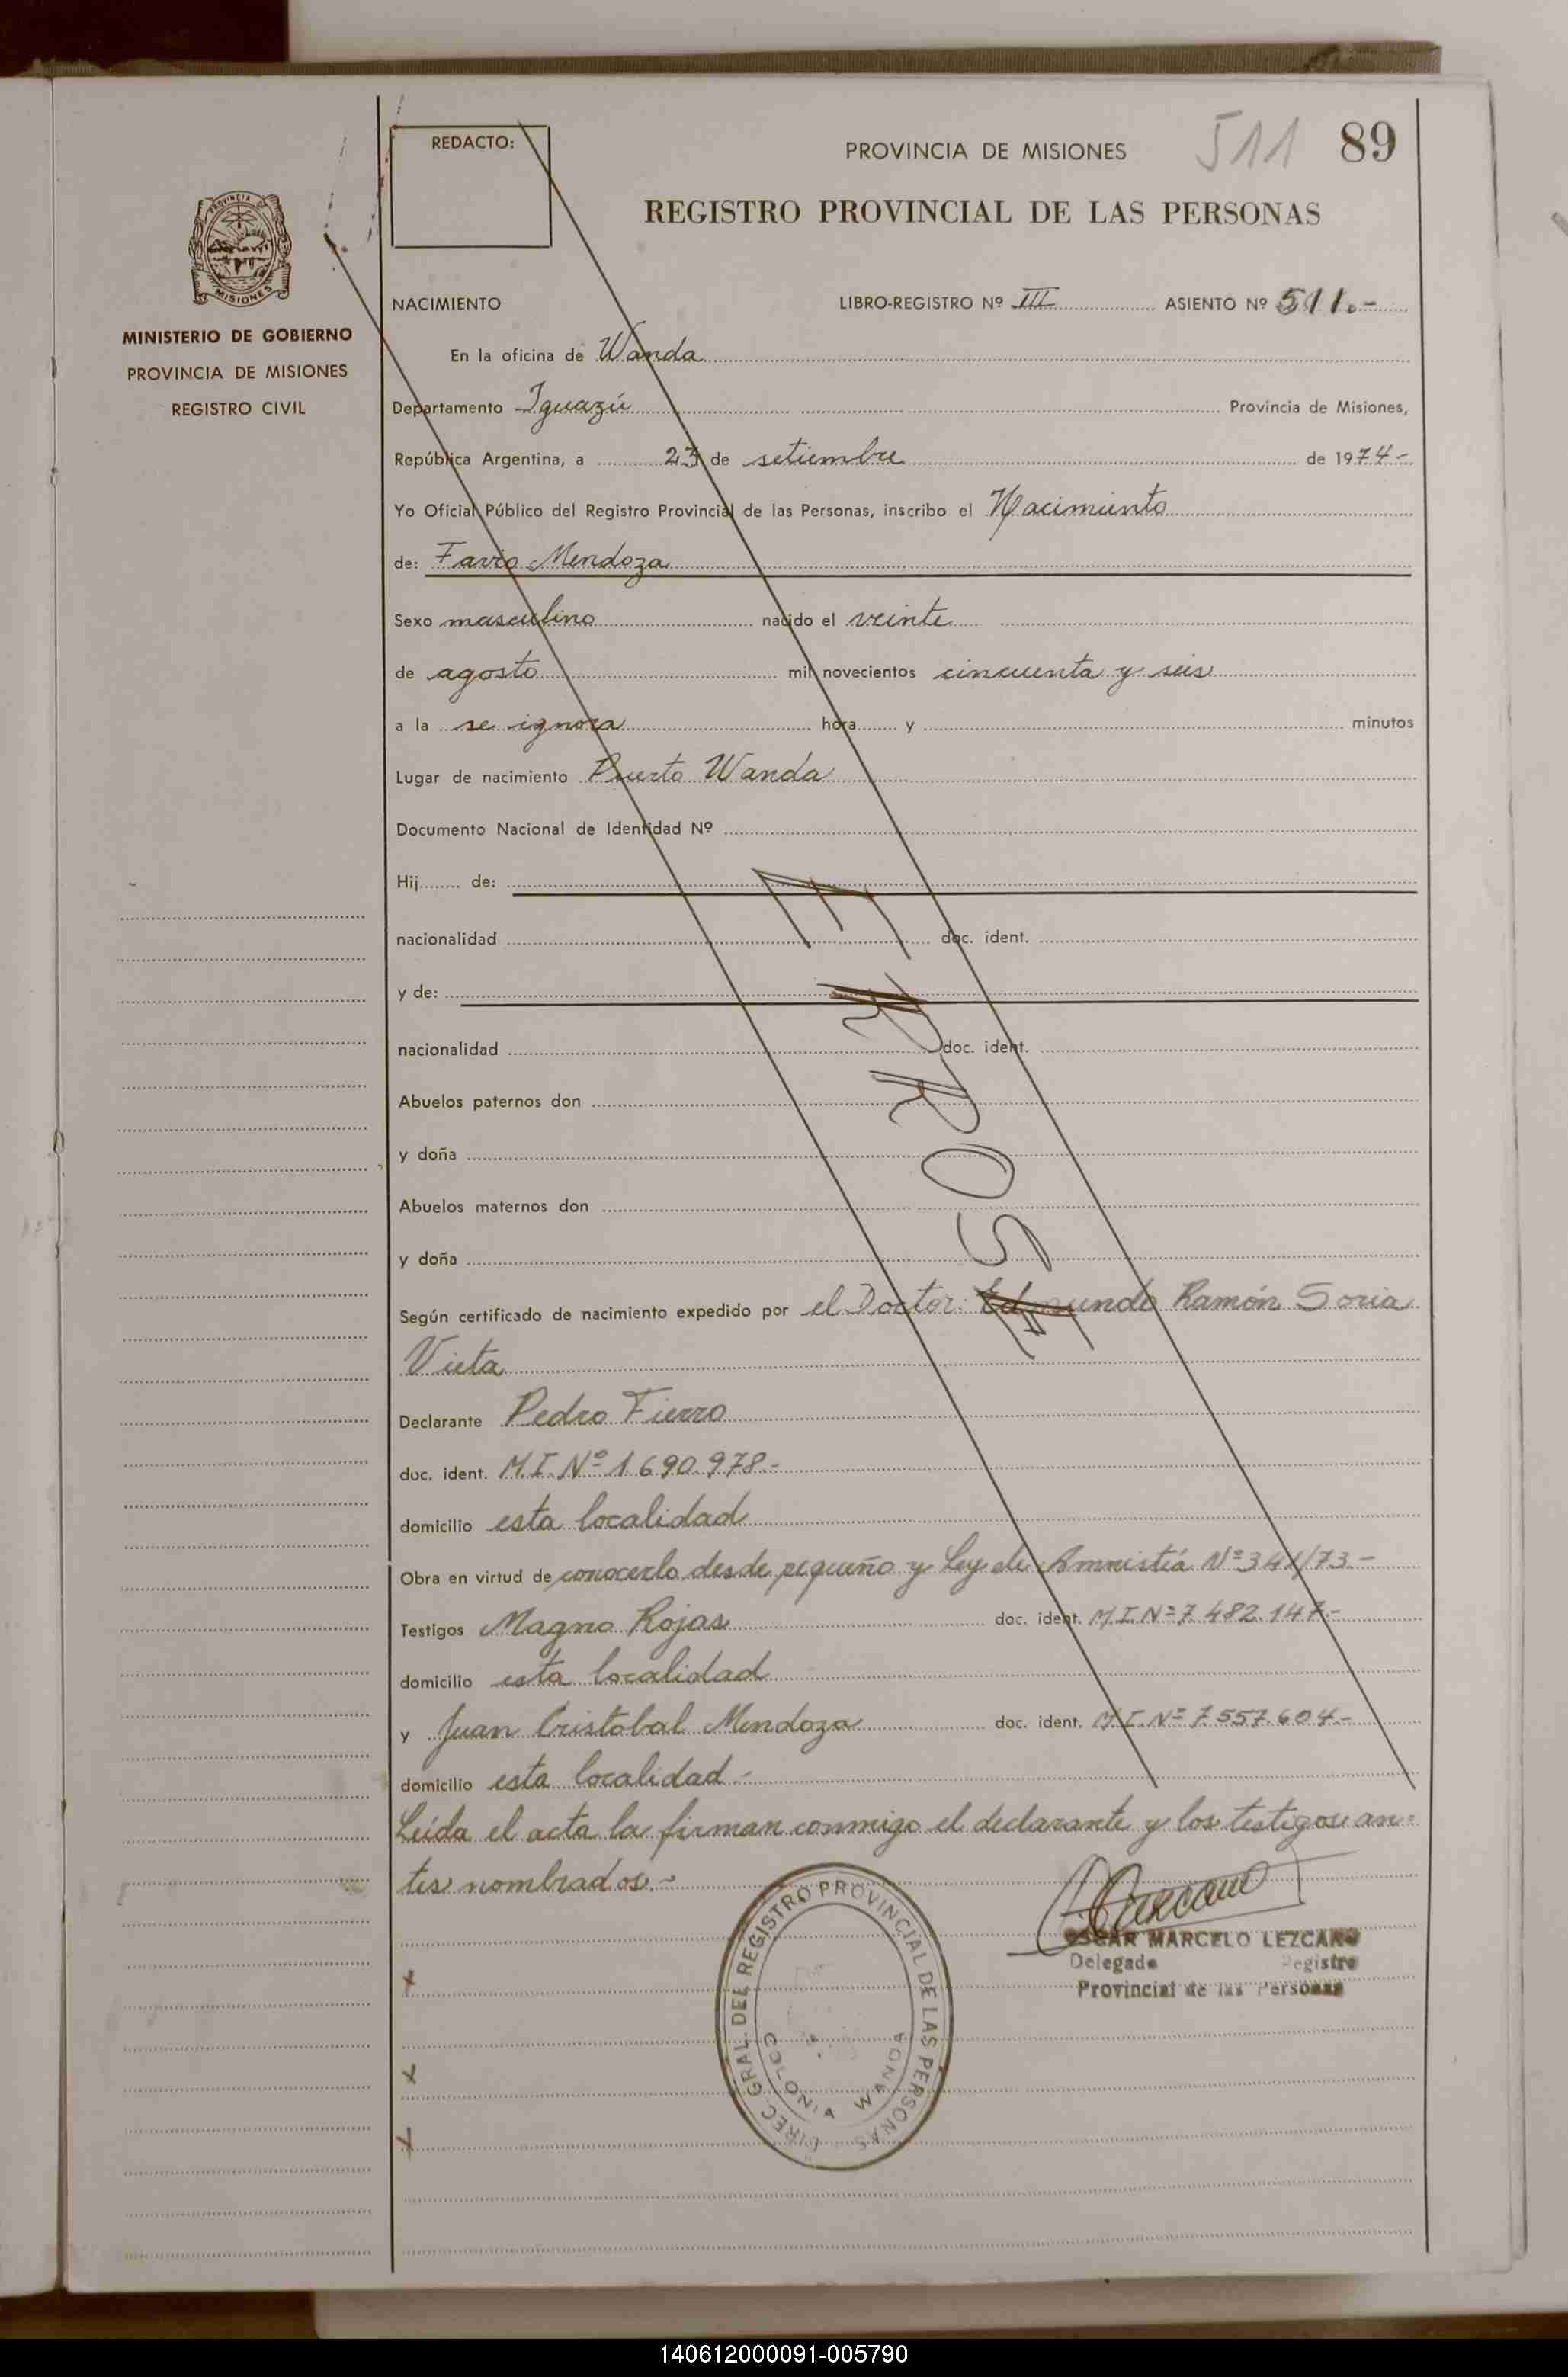 REDACTO:
PROVINCIA DE MISIONES 511 89
REGISTRO PROVINCIAL DE LAS PERSONAS
PROVINCIA
MISIONES
MINISTERIO DE GOBIERNO
PROVINCIA DE MISIONES
REGISTRO CIVIL
NACIMIENTO LIBRO-REGISTRO Nº III ASIENTO Nº 511.-
En la oficina de Wanda
Departamento Iguazú Provincia de Misiones,
República Argentina, a 23 de setiembre de 1974-
Yo Oficial Público del Registro Provincial de las Personas, inscribo el Nacimiento
de: Favio Mendoza
Sexo masculino nacido el veinte
de agosto mil novecientos cincuenta y seis
a la se ignora hora y minutos
Lugar de nacimiento Puerto Wanda
Documento Nacional de Identidad Nº
Hij de:
nacionalidad doc. ident.
y de:
nacionalidad doc. ident.
Abuelos paternos don
y doña
Abuelos maternos don
y doña
ERROSE
Según certificado de nacimiento expedido por el Doctor Edmundo Ramón Soria
Vieta
Declarante Pedro Fierro
doc. ident. M.I. Nº 1.690.978.-
domicilio esta localidad
Obra en virtud de conocerlo desde pequeño y Ley de Amnistía Nº 341/73-
Testigos Magno Rojas doc. ident. M.I. Nº 7.482.147.-
domicilio esta localidad
y Juan Cristobal Mendoza doc. ident. M.I. Nº 7.557.604.-
domicilio esta localidad.-
Leída el acta la firman conmigo el declarante y los testigos an=
tes nombrados.-
OSCAR MARCELO LEZCANO
Delegado Registro
Provincial de las Personas
DIREC. GRAL. DEL REGISTRO PROVINCIAL DE LAS PERSONAS
COLONIA WANDA
x
x
x
140612000091-005790